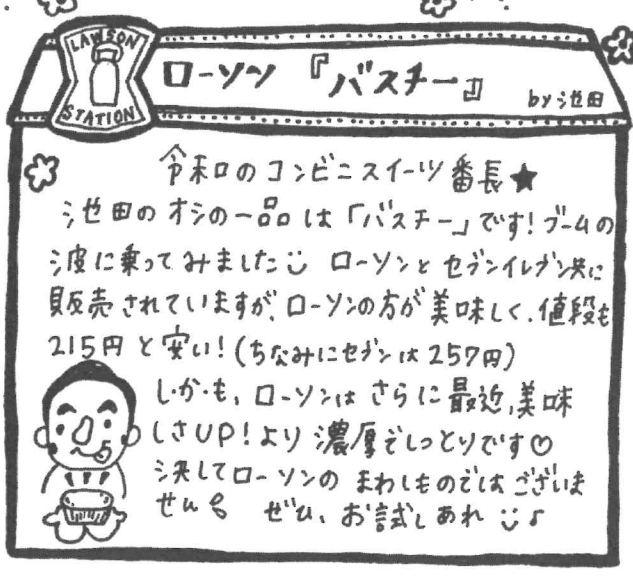 LAWSON
STATION
ローソン 『バスチー』 by池田
令和のコンビニスイーツ番長★
池田のオシの一品は「バスチー」です！ブームの
波に乗ってみました ローソンとセブンイレブン共に
販売されていますが、ローソンの方が美味しく、値段も
215円と安い！(ちなみにセブンは257円)
しかも、ローソンはさらに最近、美味
しさUP！より濃厚でしっとりです♡
決してローソンのまわしものではございま
せん ぜひ、お試しあれ ♪